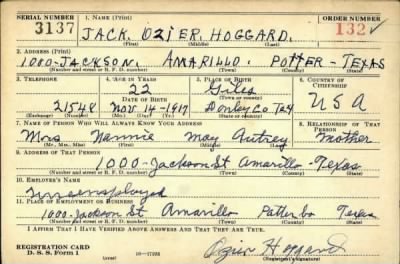 SERIAL NUMBER 1. NAME (Print) ORDER NUMBER
3137 JACK. OZIER. HOGGARD. 132
(First) (Middle) (Last)
2. ADDRESS (Print)
1000-JACKSON. AMARILLO. POTTER-TEXAS
(Number and street or R. F. D. number) (Town) (County) (State)
3. TELEPHONE 4. AGE IN YEARS 5. PLACE OF BIRTH 6. COUNTRY OF CITIZENSHIP
22 Giles
DATE OF BIRTH (Town or county)
21548 Nov. 14-1917 Donley Co. U S A
(Exchange) (Number) (Mo.) (Day) (Yr.) (State or country)
7. NAME OF PERSON WHO WILL ALWAYS KNOW YOUR ADDRESS 8. RELATIONSHIP OF THAT PERSON
Mrs Nannie May Autrey Mother
(Mr., Mrs., Miss) (First) (Middle) (Last)
9. ADDRESS OF THAT PERSON
1000-Jackson St Amarillo-Texas
(Number and street or R. F. D. number) (Town) (County) (State)
10. EMPLOYER'S NAME
Unemployed
11. PLACE OF EMPLOYMENT OR BUSINESS
1000-Jackson St Amarillo Potter Co Texas
(Number and street or R. F. D. number) (Town) (County) (State)
I AFFIRM THAT I HAVE VERIFIED ABOVE ANSWERS AND THAT THEY ARE TRUE.
REGISTRATION CARD
D. S. S. Form 1 (over) Ozier Hoggard
(Registrant's signature)